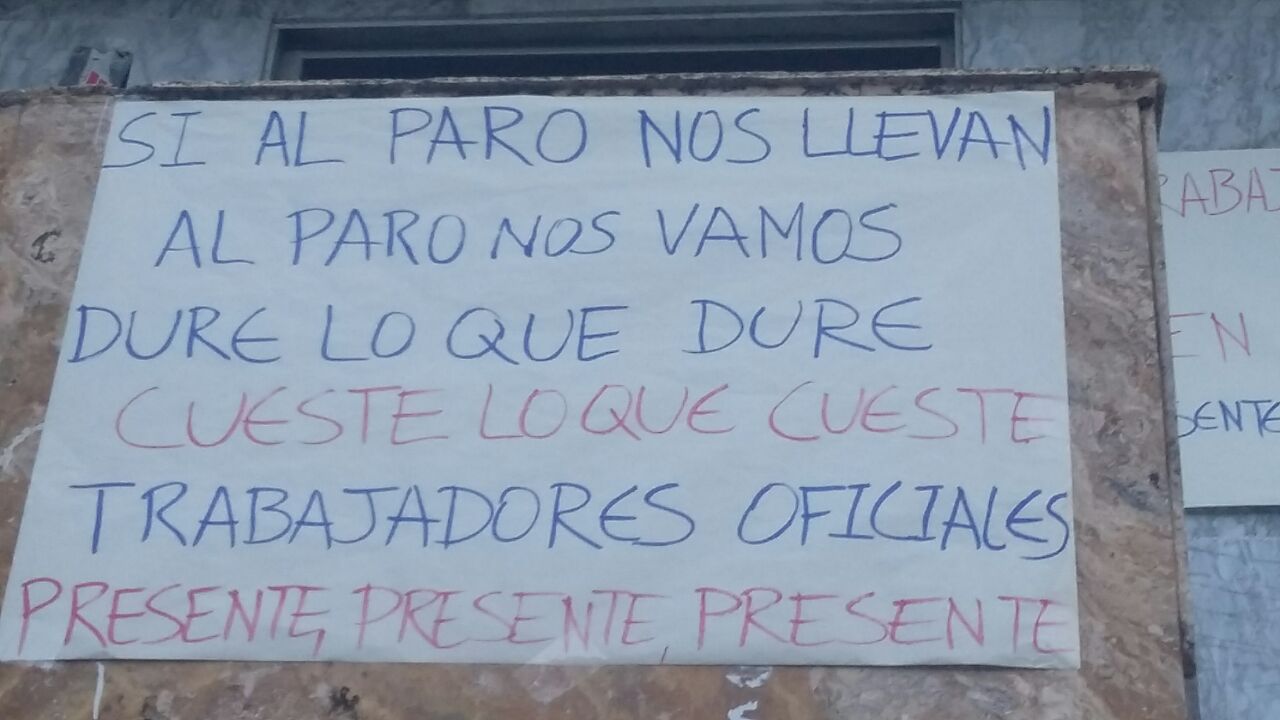 SI AL PARO NOS LLEVAN
AL PARO NOS VAMOS
DURE LO QUE DURE
CUESTE LO QUE CUESTE
TRABAJADORES OFICIALES
PRESENTE, PRESENTE, PRESENTE
RABAJ
EN
SENTE